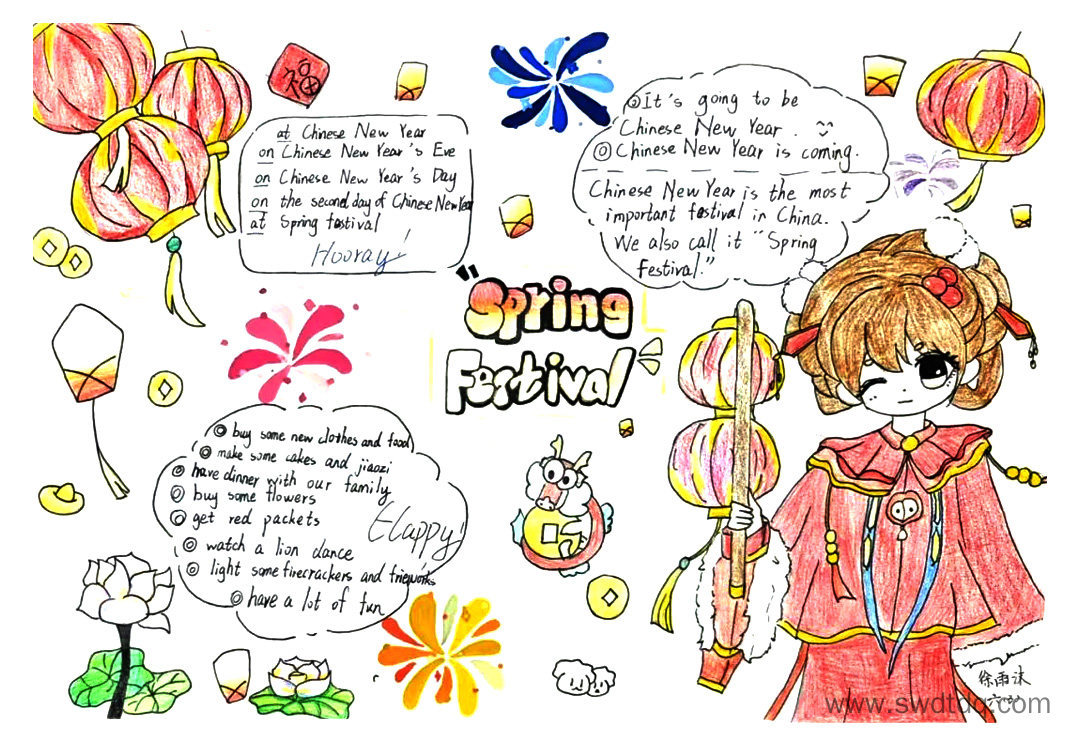 福
at Chinese New Year
on Chinese New Year's Eve
on Chinese New Year's Day
on the second day of Chinese New Year
at Spring fastival
Hooray!
◎It's going to be
Chinese New Year.
◎Chinese New Year is coming.
Chinese New Year is the most
important festival in China.
We also call it "Spring
Festival."
"Spring
Festival
◎ buy some new clothes and food
◎ make some cakes and jiaozi
◎ have dinner with our family
◎ buy some flowers
◎ get red packets
◎ watch a lion dance
◎ light some firecrackers and
◎ have a lot of fun
Happy!
徐雨沫
www.swdtdq.com